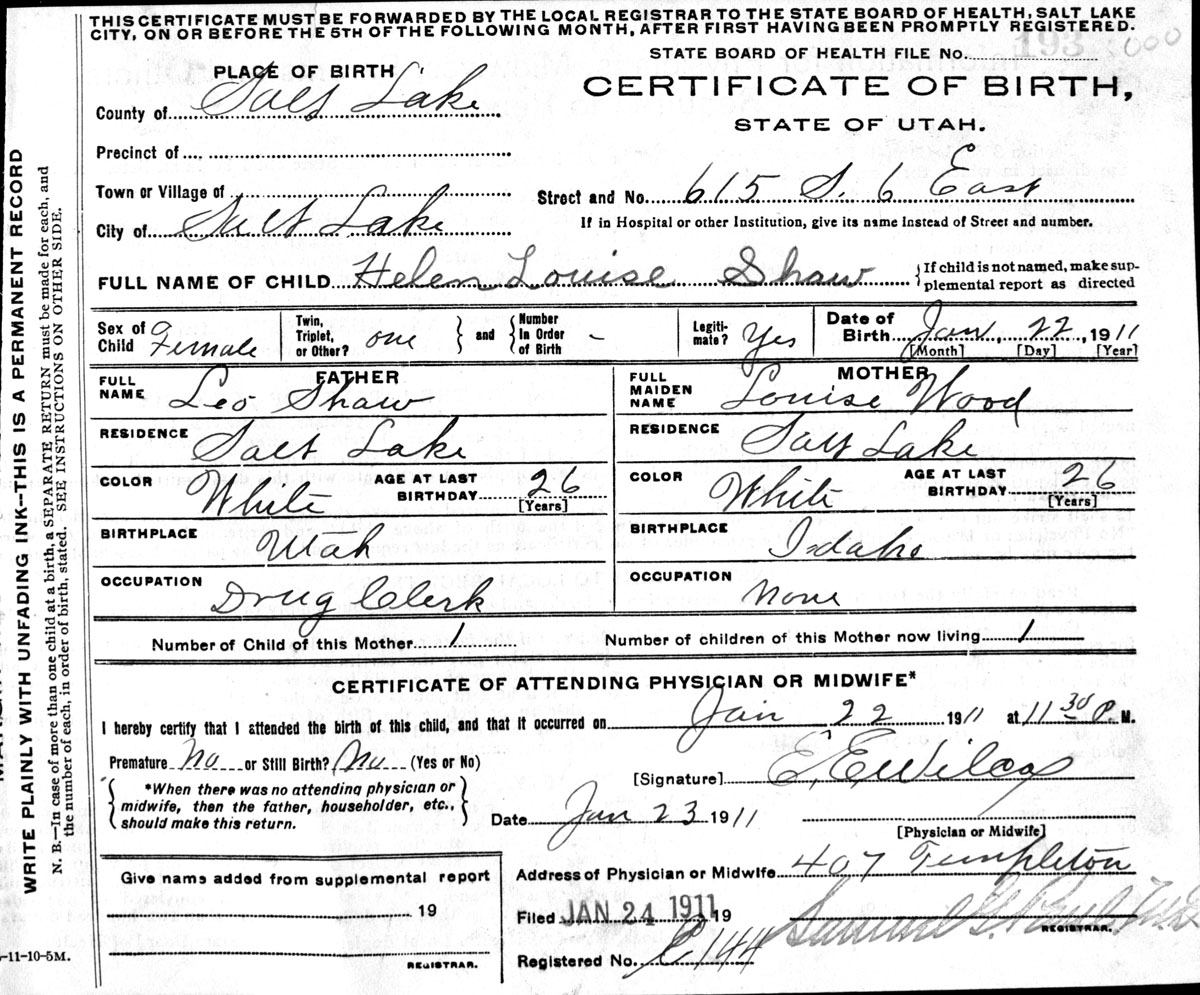 THIS CERTIFICATE MUST BE FORWARDED BY THE LOCAL REGISTRAR TO THE STATE BOARD OF HEALTH, SALT LAKE
CITY, ON OR BEFORE THE 5TH OF THE FOLLOWING MONTH, AFTER FIRST HAVING BEEN PROMPTLY REGISTERED.
STATE BOARD OF HEALTH FILE No. 193
PLACE OF BIRTH
CERTIFICATE OF BIRTH,
STATE OF UTAH.
County of Salt Lake
Precinct of
Town or Village of
Street and No. 615 S. 6 East
City of Salt Lake
If in Hospital or other Institution, give its name instead of Street and number.
FULL NAME OF CHILD Helen Louise Shaw
{If child is not named, make sup-
plemental report as directed
Sex of Child Female
Twin, Triplet, or Other? one } and { Number In Order of Birth -
Legiti- mate? Yes
Date of Birth Jan, 22, 1911
[Month] [Day] [Year]
FATHER
FULL NAME Leo Shaw
MOTHER
FULL MAIDEN NAME Louise Wood
RESIDENCE Salt Lake
RESIDENCE Salt Lake
COLOR White AGE AT LAST BIRTHDAY 26 [Years]
COLOR White AGE AT LAST BIRTHDAY 26 [Years]
BIRTHPLACE Utah
BIRTHPLACE Idaho
OCCUPATION Drug Clerk
OCCUPATION None
Number of Child of this Mother 1 Number of children of this Mother now living 1
CERTIFICATE OF ATTENDING PHYSICIAN OR MIDWIFE*
I hereby certify that I attended the birth of this child, and that it occurred on Jan 22 1911 at 11 30 P. M.
Premature No or Still Birth? No (Yes or No)
[Signature] E. E. Wilcox
{ *When there was no attending physician or
midwife, then the father, householder, etc.,
should make this return. }
Date Jan 23 1911
[Physician or Midwife]
Address of Physician or Midwife 407 Templeton
Give name added from supplemental report
19
REGISTRAR.
Filed JAN 24 1911 19
REGISTRAR.
Registered No. 144
WRITE PLAINLY WITH UNFADING INK—THIS IS A PERMANENT RECORD
N. B.—In case of more than one child at a birth, a SEPARATE RETURN must be made for each, and
the number of each, in order of birth, stated. SEE INSTRUCTIONS ON OTHER SIDE.
-11-10-5M.